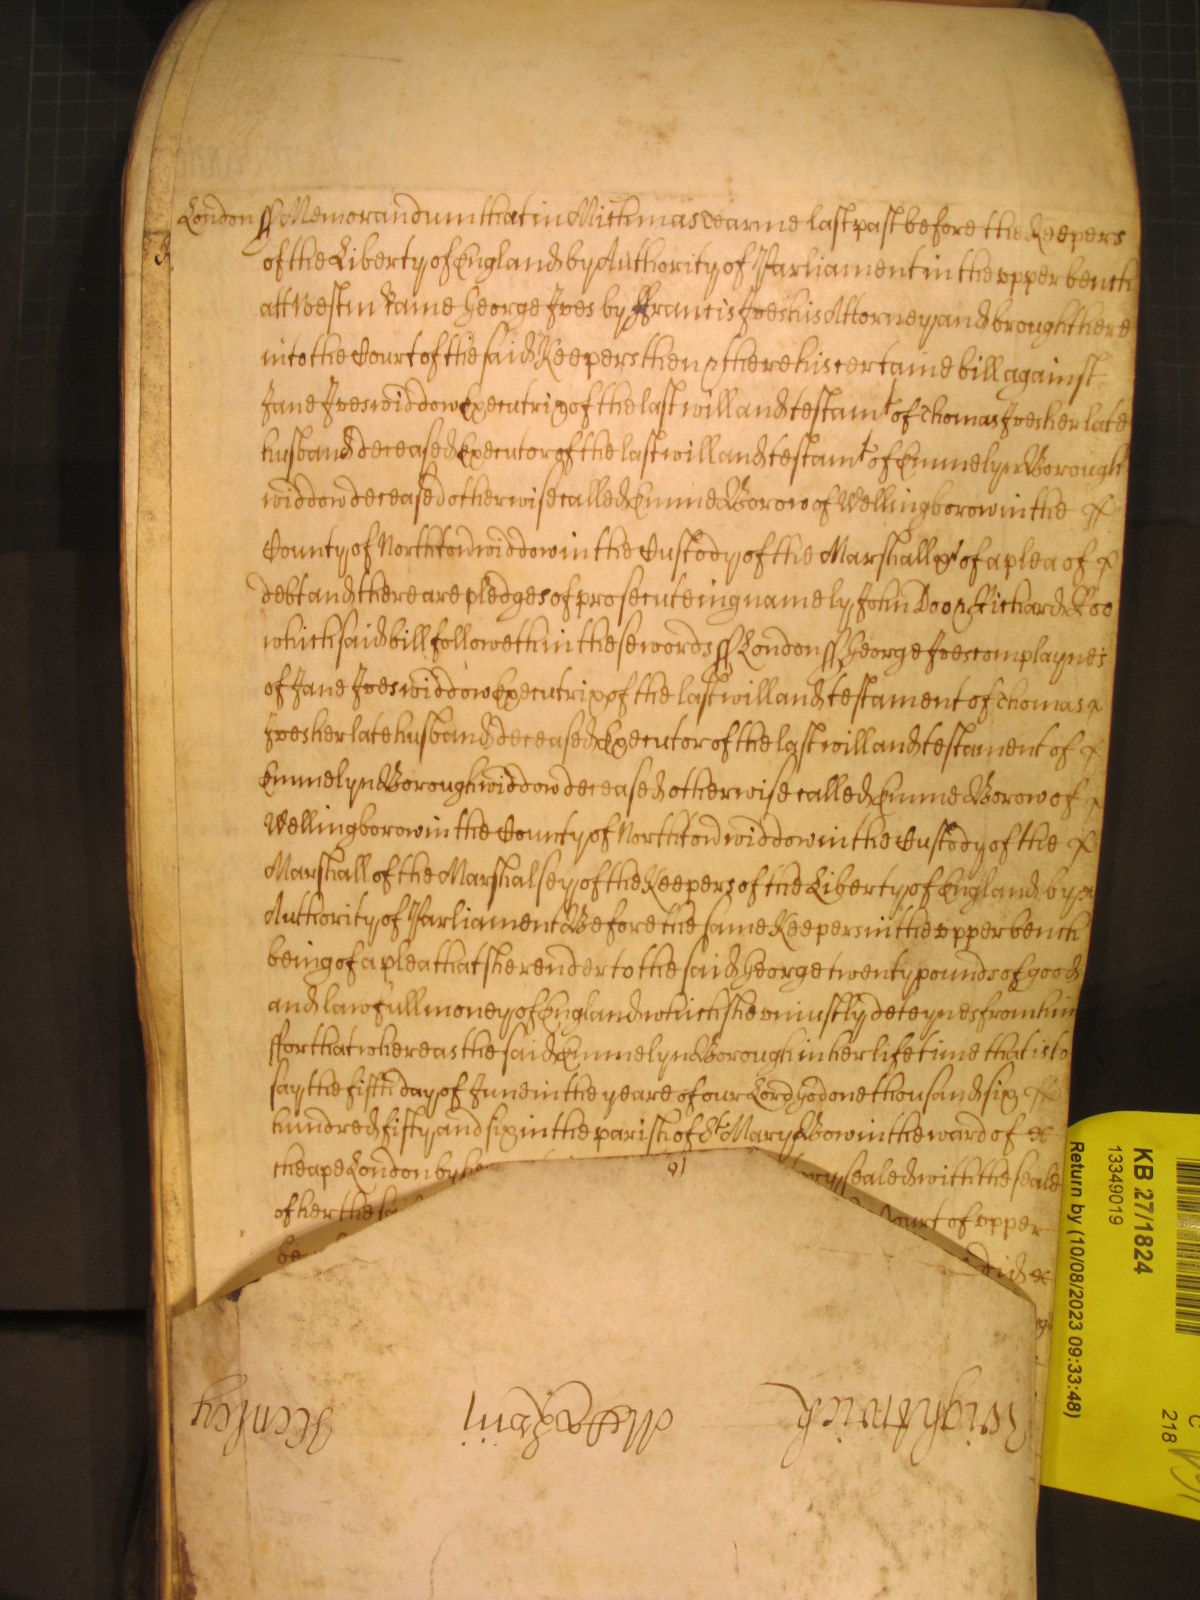 London ss Memorandum that in Michmas tearme last past before the Keepers
of the Liberty of England by Authority of Parliament in the upper bench
att Westm came George Ives by ffrancis Ives his Attorney and brought here
into the Court of the said Keepers then & there his certaine bill against
Jane Ives widdow Executrix of the last will and testamt of Thomas Ives her late
husband deceased Executor of the last will and testamt of Emmelyn Borough
widdow deceased otherwise called Emme Borow of Wellingborow in the
County of Northton widdow in the Custody of the Marshall &c of a plea of
debt and there are pledges of prosecuteing namely John Doo & Richard Roo
which said bill followeth in these words ss London ss George Ives complaynes
of Jane Ives widdow Executrix of the last will and testament of Thomas
Ives her late husband deceased Executor of the last will and testament of
Emmelyn Borough widdow deceased otherwise called Emme Borow of
Wellingborow in the County of Northton widdow in the Custody of the
Marshall of the Marshalsey of the Keepers of the Liberty of England by
Authority of Parliament Before the same Keepers in the upper bench
being of a plea that she render to the said George twenty pounds of good
and lawfull money of England which she uniustly deteynes from him
ffor that whereas the said Emmelyn Borough in her life time that is to
say the fifth day of June in the yeare of our Lord God one thousand six
hundred fifty and six in the parish of St Mary Bow in the ward of
Cheape London by her sealed with the seale
of her the Court of upper
be did
Rightwich
Henley
KB 27/1824
13349019
Return by (10/08/2023 09:33:48)
218